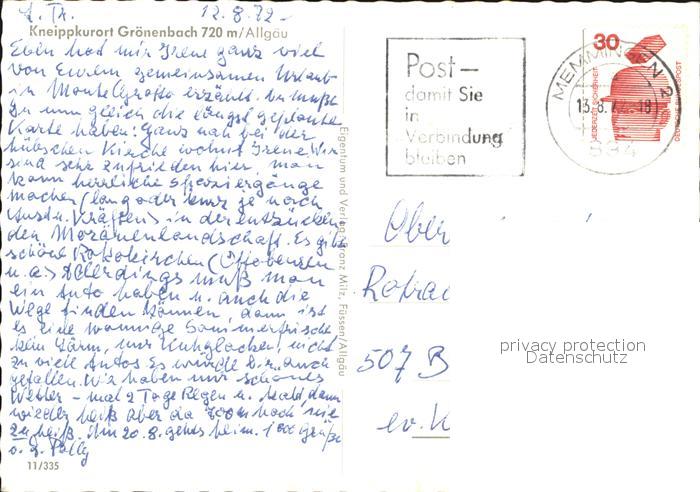 L. Tr. 12.8.72 -
Kneippkurort Grönenbach 720 m/Allgäu
Eben hat mir Irene ganz viel
von Eurem gemeinsamen Urlaub
in Montegrotto erzählt. Da mußte
Du nun gleich die längst geplante
Karte haben! Ganz nah bei der
hübschen Kirche wohnt Irene. Wir
sind sehr zufrieden hier, man
kann herrliche Spaziergänge
machen (lang oder kurz je nach
Lust u. Kräften) in der entzücken
den Moränenlandschaft. Es gibt
schöne Rokokokirchen (Ottobeuren
u.a.) Allerdings muß man
ein Auto haben u. auch die
Wege finden können, dann ist
es eine wonnige Sommerfrische
kein Lärm, nur Kuhglocken, nicht
zu viele Autos. Es würde Dir auch
gefallen. Wir haben nur schönes
Wetter - mal 2 Tage Regen u. kalt, dann
wieder heiß aber da 700m hoch nie
zu heiß. Am 20.8. gehts heim. 1000 Grüße
v. D. Polly
11/335
Eigentum und Verlag Franz Milz, Füssen/Allgäu
Post —
damit Sie
in
Verbindung
bleiben
MEMMINGEN 2
13.8.72-18
894
30
JEDERZEIT SICHERHEIT
DEUTSCHE BUNDESPOST
Ober
507 B
ev. K
privacy protection
Datenschutz